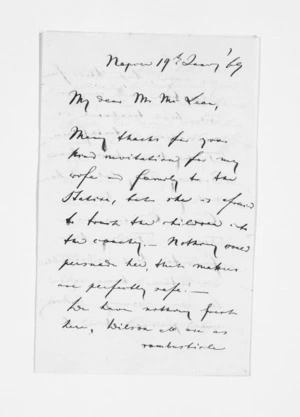 Napier 19th Jany '69
My dear Mr McLean,
Many thanks for your
kind invitation for my
wife and family to the
Station, but she is afraid
to trust the children in
the country — Nothing can
persuade her, that matters
are perfectly safe. —
We have nothing fresh
here, Wilson &c are as
combustible